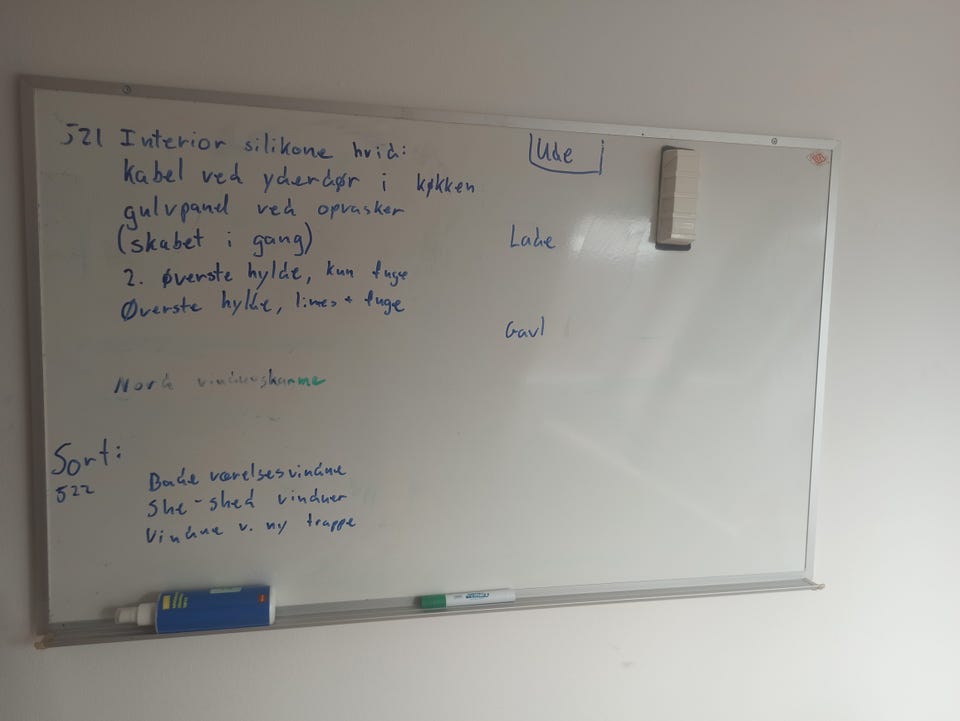 521 Interior silikone hvid:
kabel ved yderdør i køkken
gulvpanel ved opvasker
(skabet i gang)
2. øverste hylde, kun fuge
Øverste hylde, limes + fuge
Nord vindueskarme
Sort:
522
Badeværelsesvindue
She-shed vinduer
Vindue v. ny trappe
Ude
Lade
Gavl